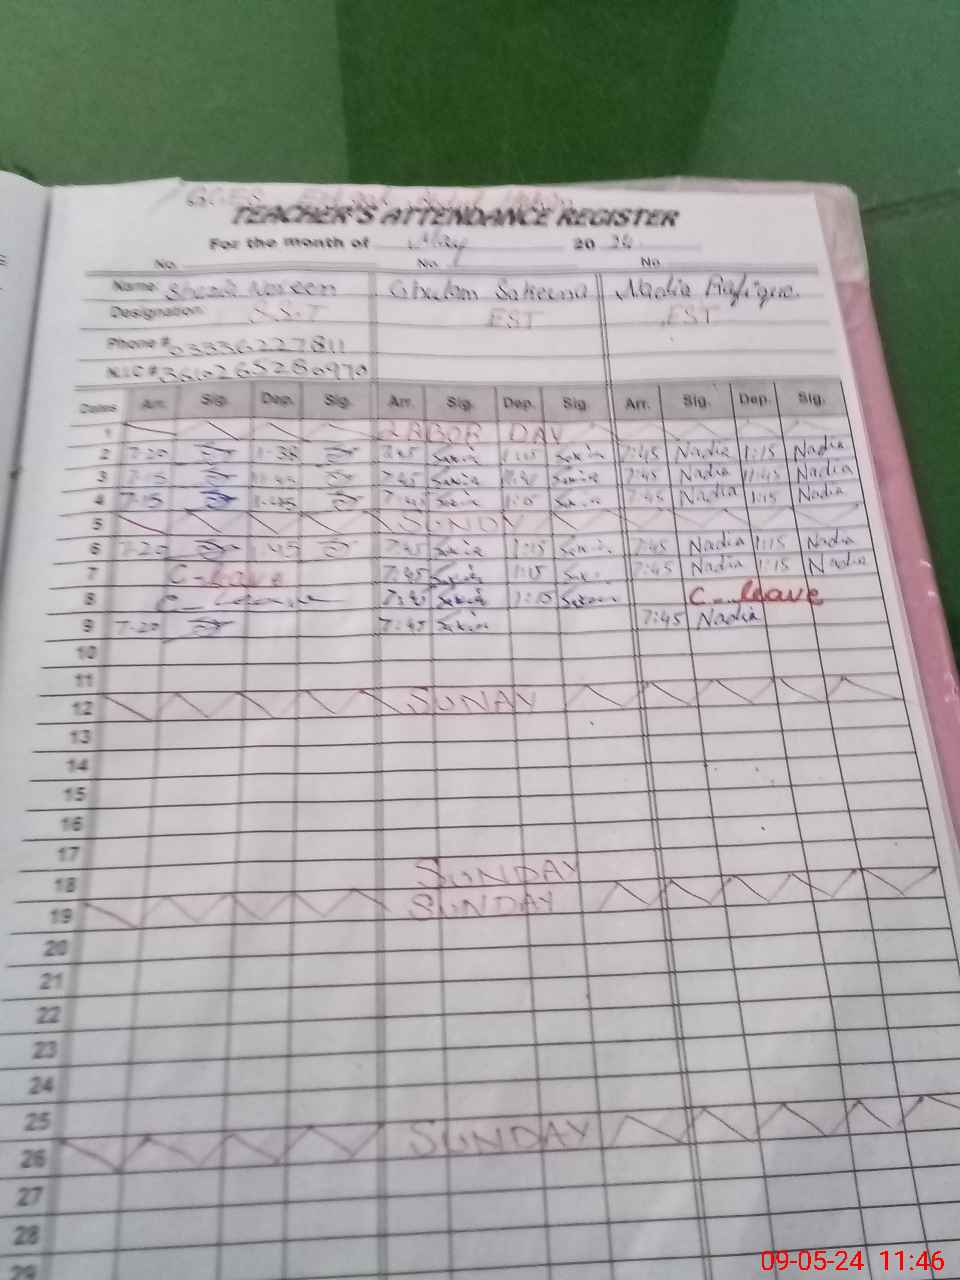 TEACHER'S ATTENDANCE REGISTER
For the month of May 20 24
No. No. No
Name Shazia Noreen Ghulam Sakeena Nadia Rafique
Designation S.S.T EST EST
Phone # 03336227811
N.I.C #
Dates Arr. Sig. Dep. Sig. Arr. Sig. Dep. Sig. Arr. Sig. Dep. Sig.
1 LABOR DAY
2 7-20 1-38 7:45 Sakin 1:15 Sakin 7:45 Nadia 1:15 Nadia
3 7-15 7:45 Sakin Sakin 7:45 Nadia 11:45 Nadia
4 7-15 1-45 7:45 Sakin 1:15 Sakin 7:45 Nadia 1:15 Nadia
5 SUNDY
6 7-20 1-45 7:45 Sakin 1:15 Sakin 7:45 Nadia 1:15 Nadia
7 C-leave 7:45 Sakin 1:15 Sakin 7:45 Nadia 1:15 Nadia
8 C-leave 7:45 Sakin 1:15 Sakin C-leave
9 7-20 7:45 Sakin 7:45 Nadia
10
11
12 SUNAY
13
14
15
16
17
18 SUNDAY
19 SUNDAY
20
21
22
23
24
25
26 SUNDAY
27
28
29
09-05-24 11:46